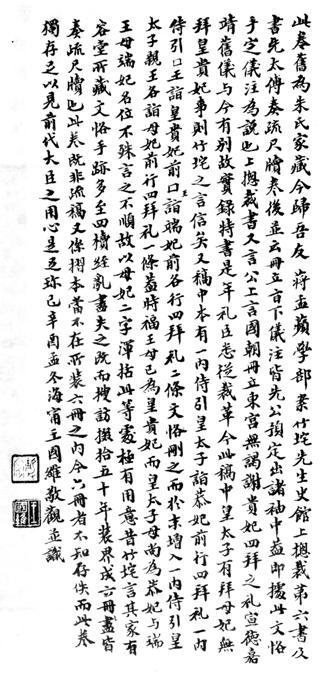 此卷舊為朱氏家藏今歸吾友蔣孟蘋學部案竹垞先生史館上總裁第六書及
書先太傅奏疏尺牘卷後並云冊立百日下儀注皆先公預定出諸袖中蓋即據此文恪
手定儀注為說也上總裁書又言公上言國朝冊立東宮無謁謝貴妃四拜之礼宣德嘉
靖舊儀与今有別故實錄特書是年礼臣悉從裁革今此稿中皇太子有拜母妃無
拜皇貴妃事則竹垞之言信矣又稿中本有一內侍引皇太子詣恭妃前行四拜礼一內
侍引口王詣皇貴妃前口王詣端妃前各行四拜礼二條文恪刪之而於末增入一內侍引皇
太子親王各詣母妃前行四拜礼一條蓋時福王母已為皇貴妃而皇太子母尚為恭妃与端
王母端妃名位不殊言之不順故以母妃二字渾括此等處極有用意昔竹垞言其家有
容堂所藏文恪手跡多至四櫝經亂盡失之既而搜訪掇拾五十年裝界成六冊盡皆
奏疏尺牘也此卷既非疏稿又係摺本當不在所裝六冊之內今六冊者不知存佚而此卷
獨存足以見前代大臣之用心是足珎已辛酉孟冬海甯王國維敬觀並識